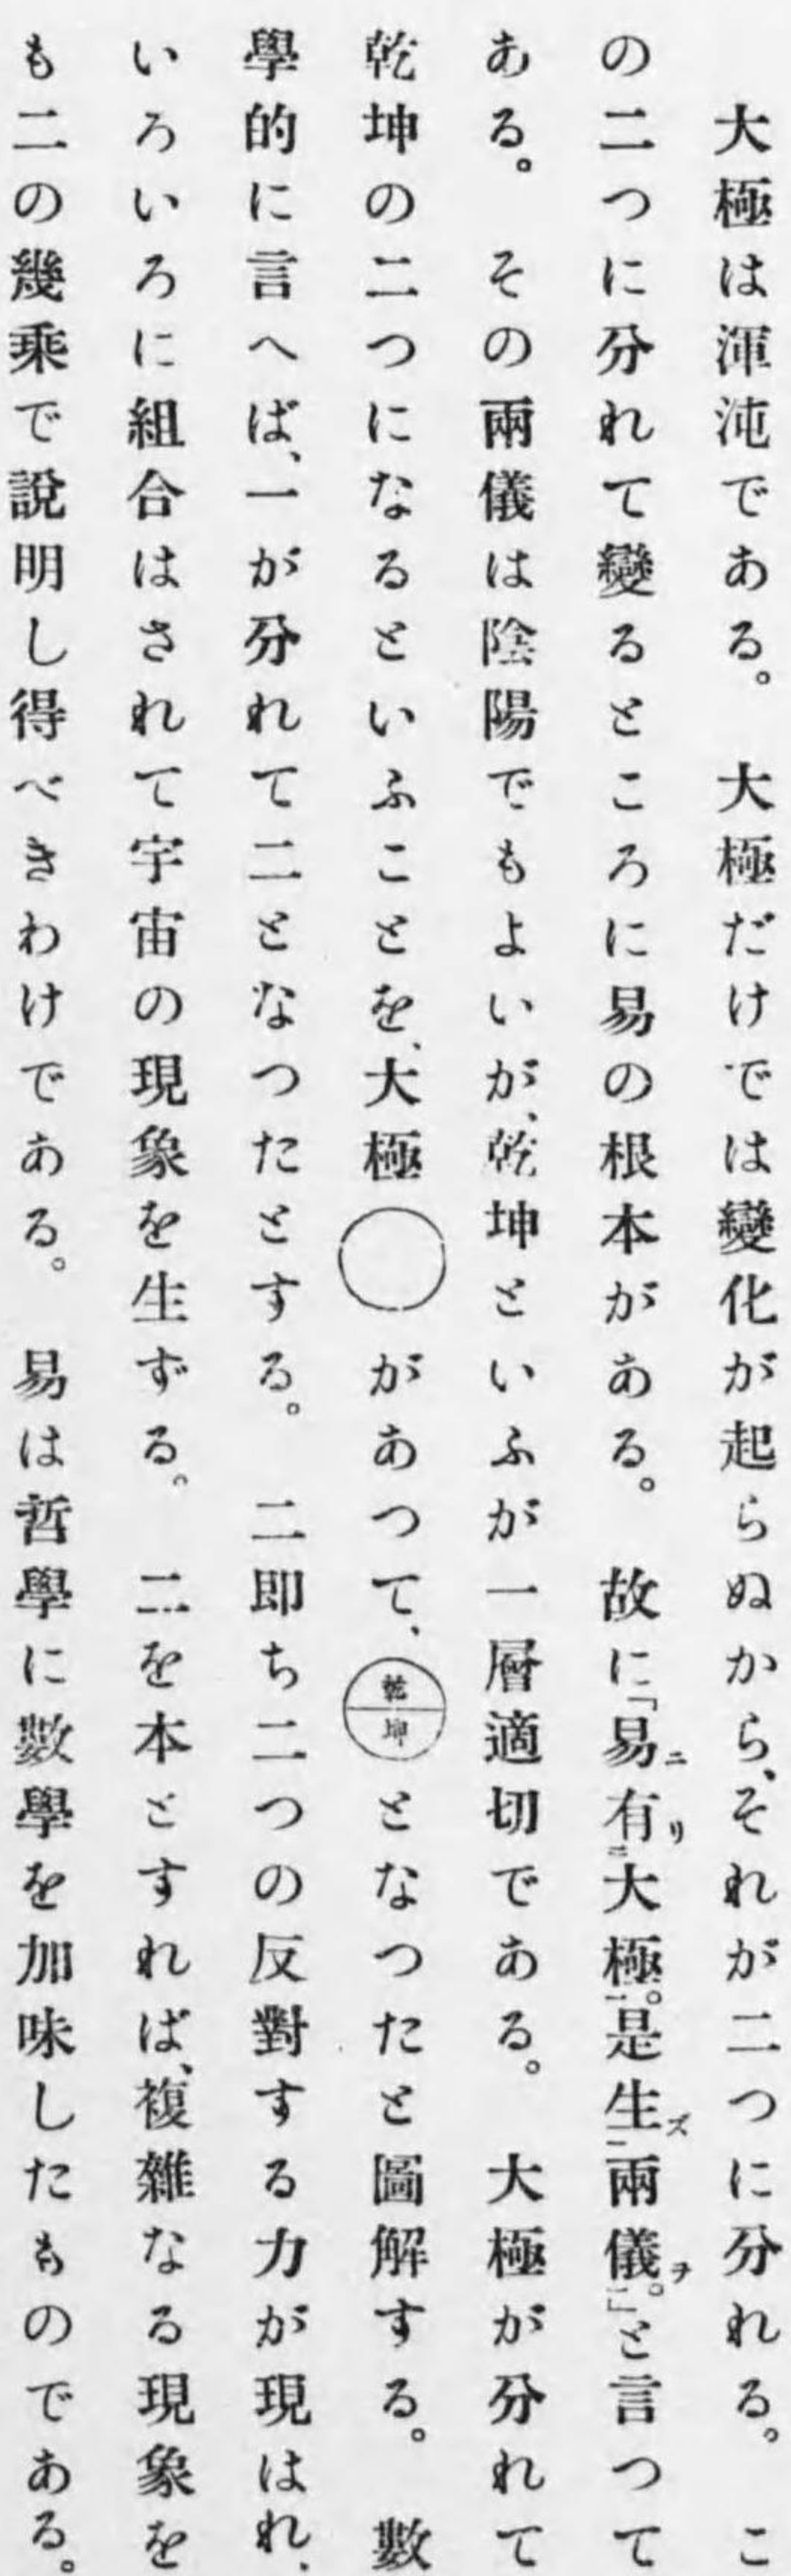 大極は渾沌である。　大極だけでは變化が起らぬから、それが二つに分れる。　こ
の二つに分れて變るところに易の根本がある。　故に「易ニ有リ二大極一。是生ズ二兩儀ヲ一。」と言つて
ある。　その兩儀は陰陽でもよいが、乾坤といふが一層適切である。　大極が分れて
乾坤の二つになるといふことを、大極○があつて、乾坤となつたと圖解する。　數
學的に言へば、一が分れて二となつたとする。　二即ち二つの反對する力が現はれ、
いろいろに組合はされて宇宙の現象を生ずる。　二を本とすれば、複雜なる現象を
も二の幾乘で說明し得べきわけである。　易は哲學に數學を加味したものである。